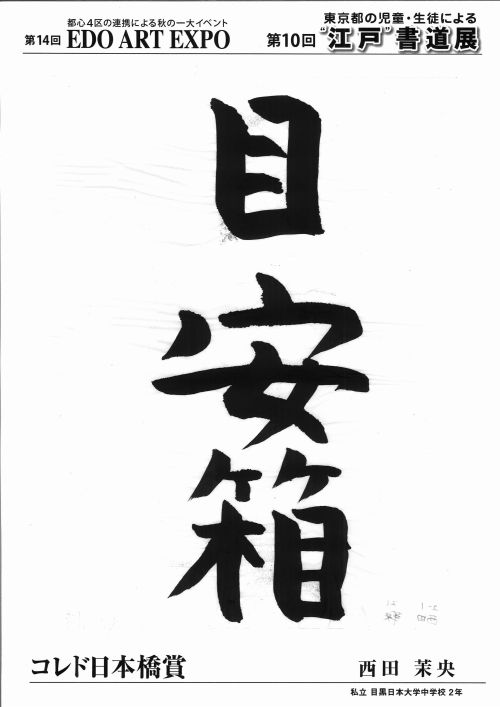 都心4区の連携による秋の一大イベント
第14回 EDO ART EXPO
東京都の児童・生徒による
第10回 "江戸"書道展
目安箱
コレド日本橋賞
西田 茉央
私立 目黒日本大学中学校 2年